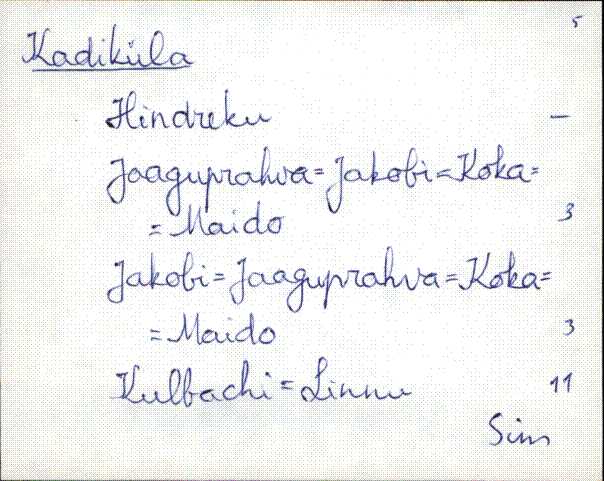 5
Kadiküla
Hindreku —
Jaaguprahva=Jakobi=Koka=
=Maido 3
Jakobi=Jaaguprahva=Koka=
=Maido 3
Kulbachi=Linnu 11
Sim